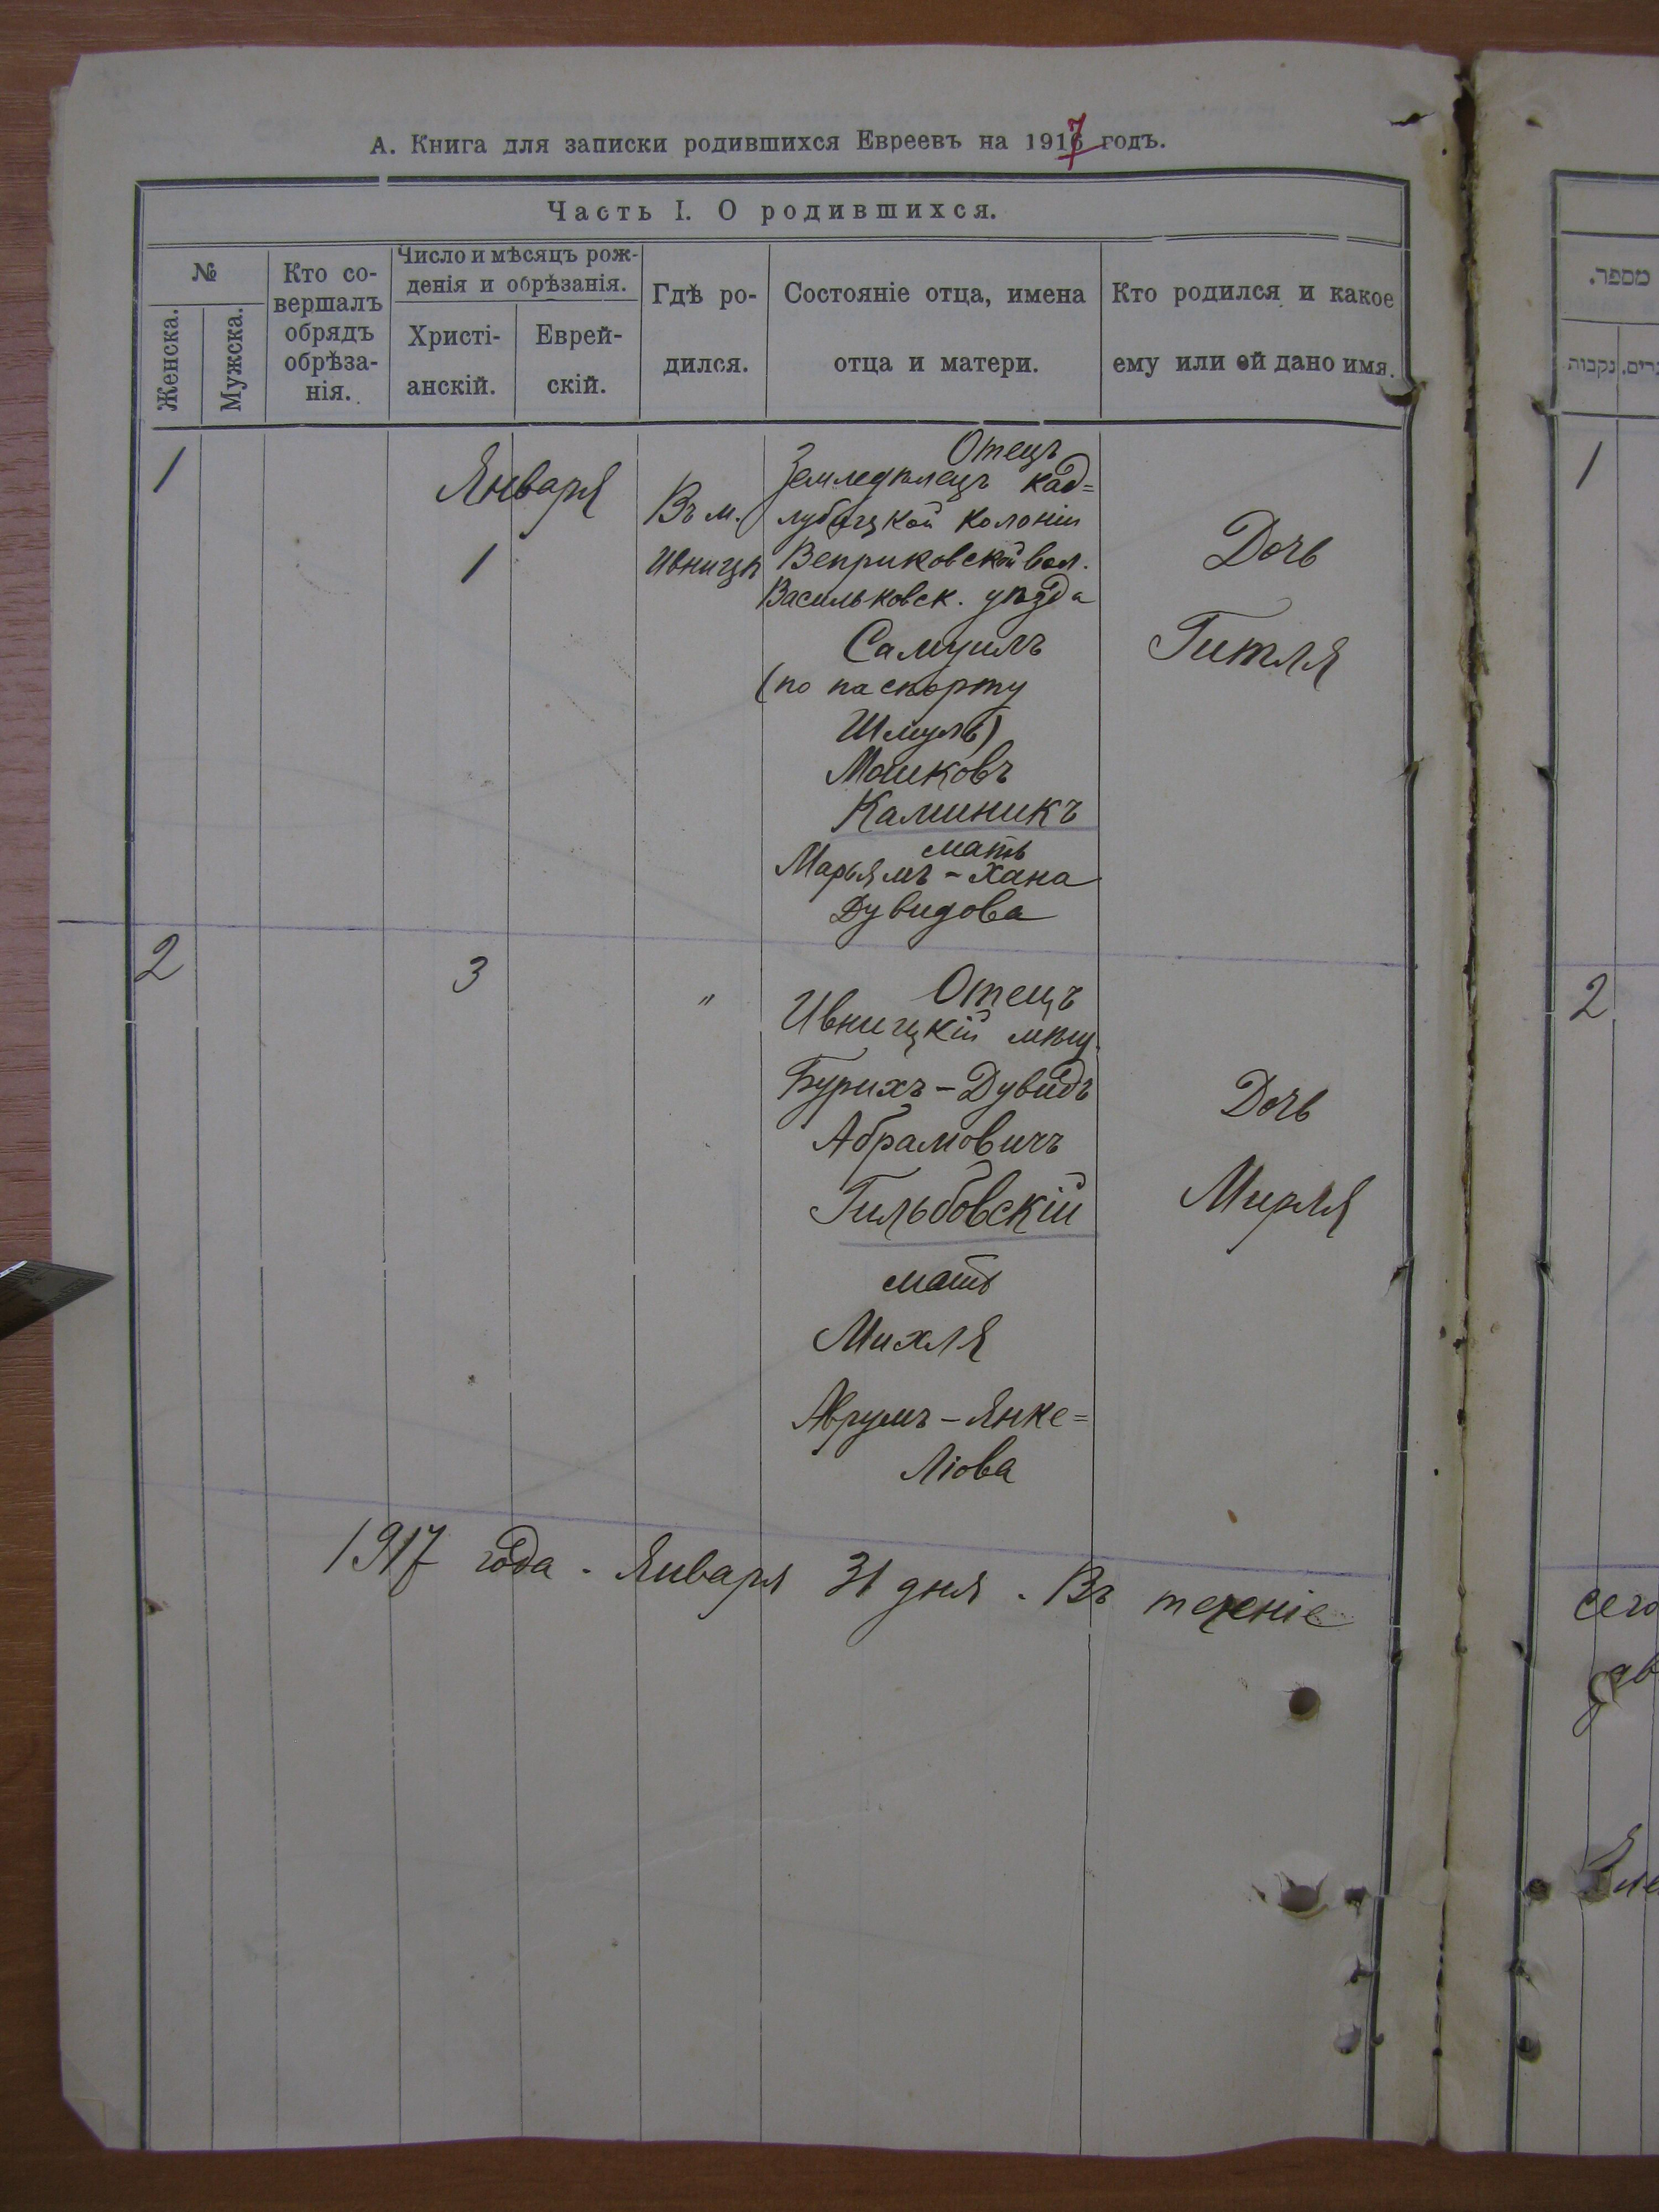 А. Книга для записки родившихся Евреевъ на 1917 годъ.
Часть I. О родившихся.
№
Женска.
Мужска.
Кто со-
вершалъ
обрядъ
обрѣза-
нія.
Число и мѣсяцъ рож-
денія и обрѣзанія.
Христі-
анскій.
Еврей-
скій.
Гдѣ ро-
дился.
Состояніе отца, имена
отца и матери.
Кто родился и какое
ему или ей дано имя.
1
Января
1
Въ м.
Ивницѣ
Отецъ
Земледѣлецъ Кад=
лубицкой колоніи
Веприковской вол.
Васильковск. уѣзда
Самуилъ
(по паспорту
Шмуль)
Мошковъ
Калиникъ
мать
Марьямъ - Хана
Дувидова
Дочь
Гитля
2
3
"
Отецъ
Ивницкій мѣщ.
Бурихъ - Дувидъ
Абрамовичъ
Гильбовскій
мать
Михля
Аврумъ - Янке=
ліова
Дочь
Мирля
1917 года . Января 31 дня . Въ теченіе
מספר.
נקבות
1
2
сего